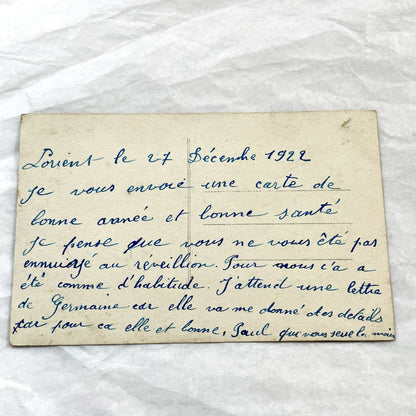 Lorient le 27 Décembre 1922
Je vous envoie une carte de
bonne année et bonne santé
je pense que vous ne vous été pas
ennuiyé au réveillon. Pour nous c'a a
été comme d'habitude. J'attend une lettre
de Germaine car elle va me donné des details
car pour ca elle et bonne, Paul que vous serre la main